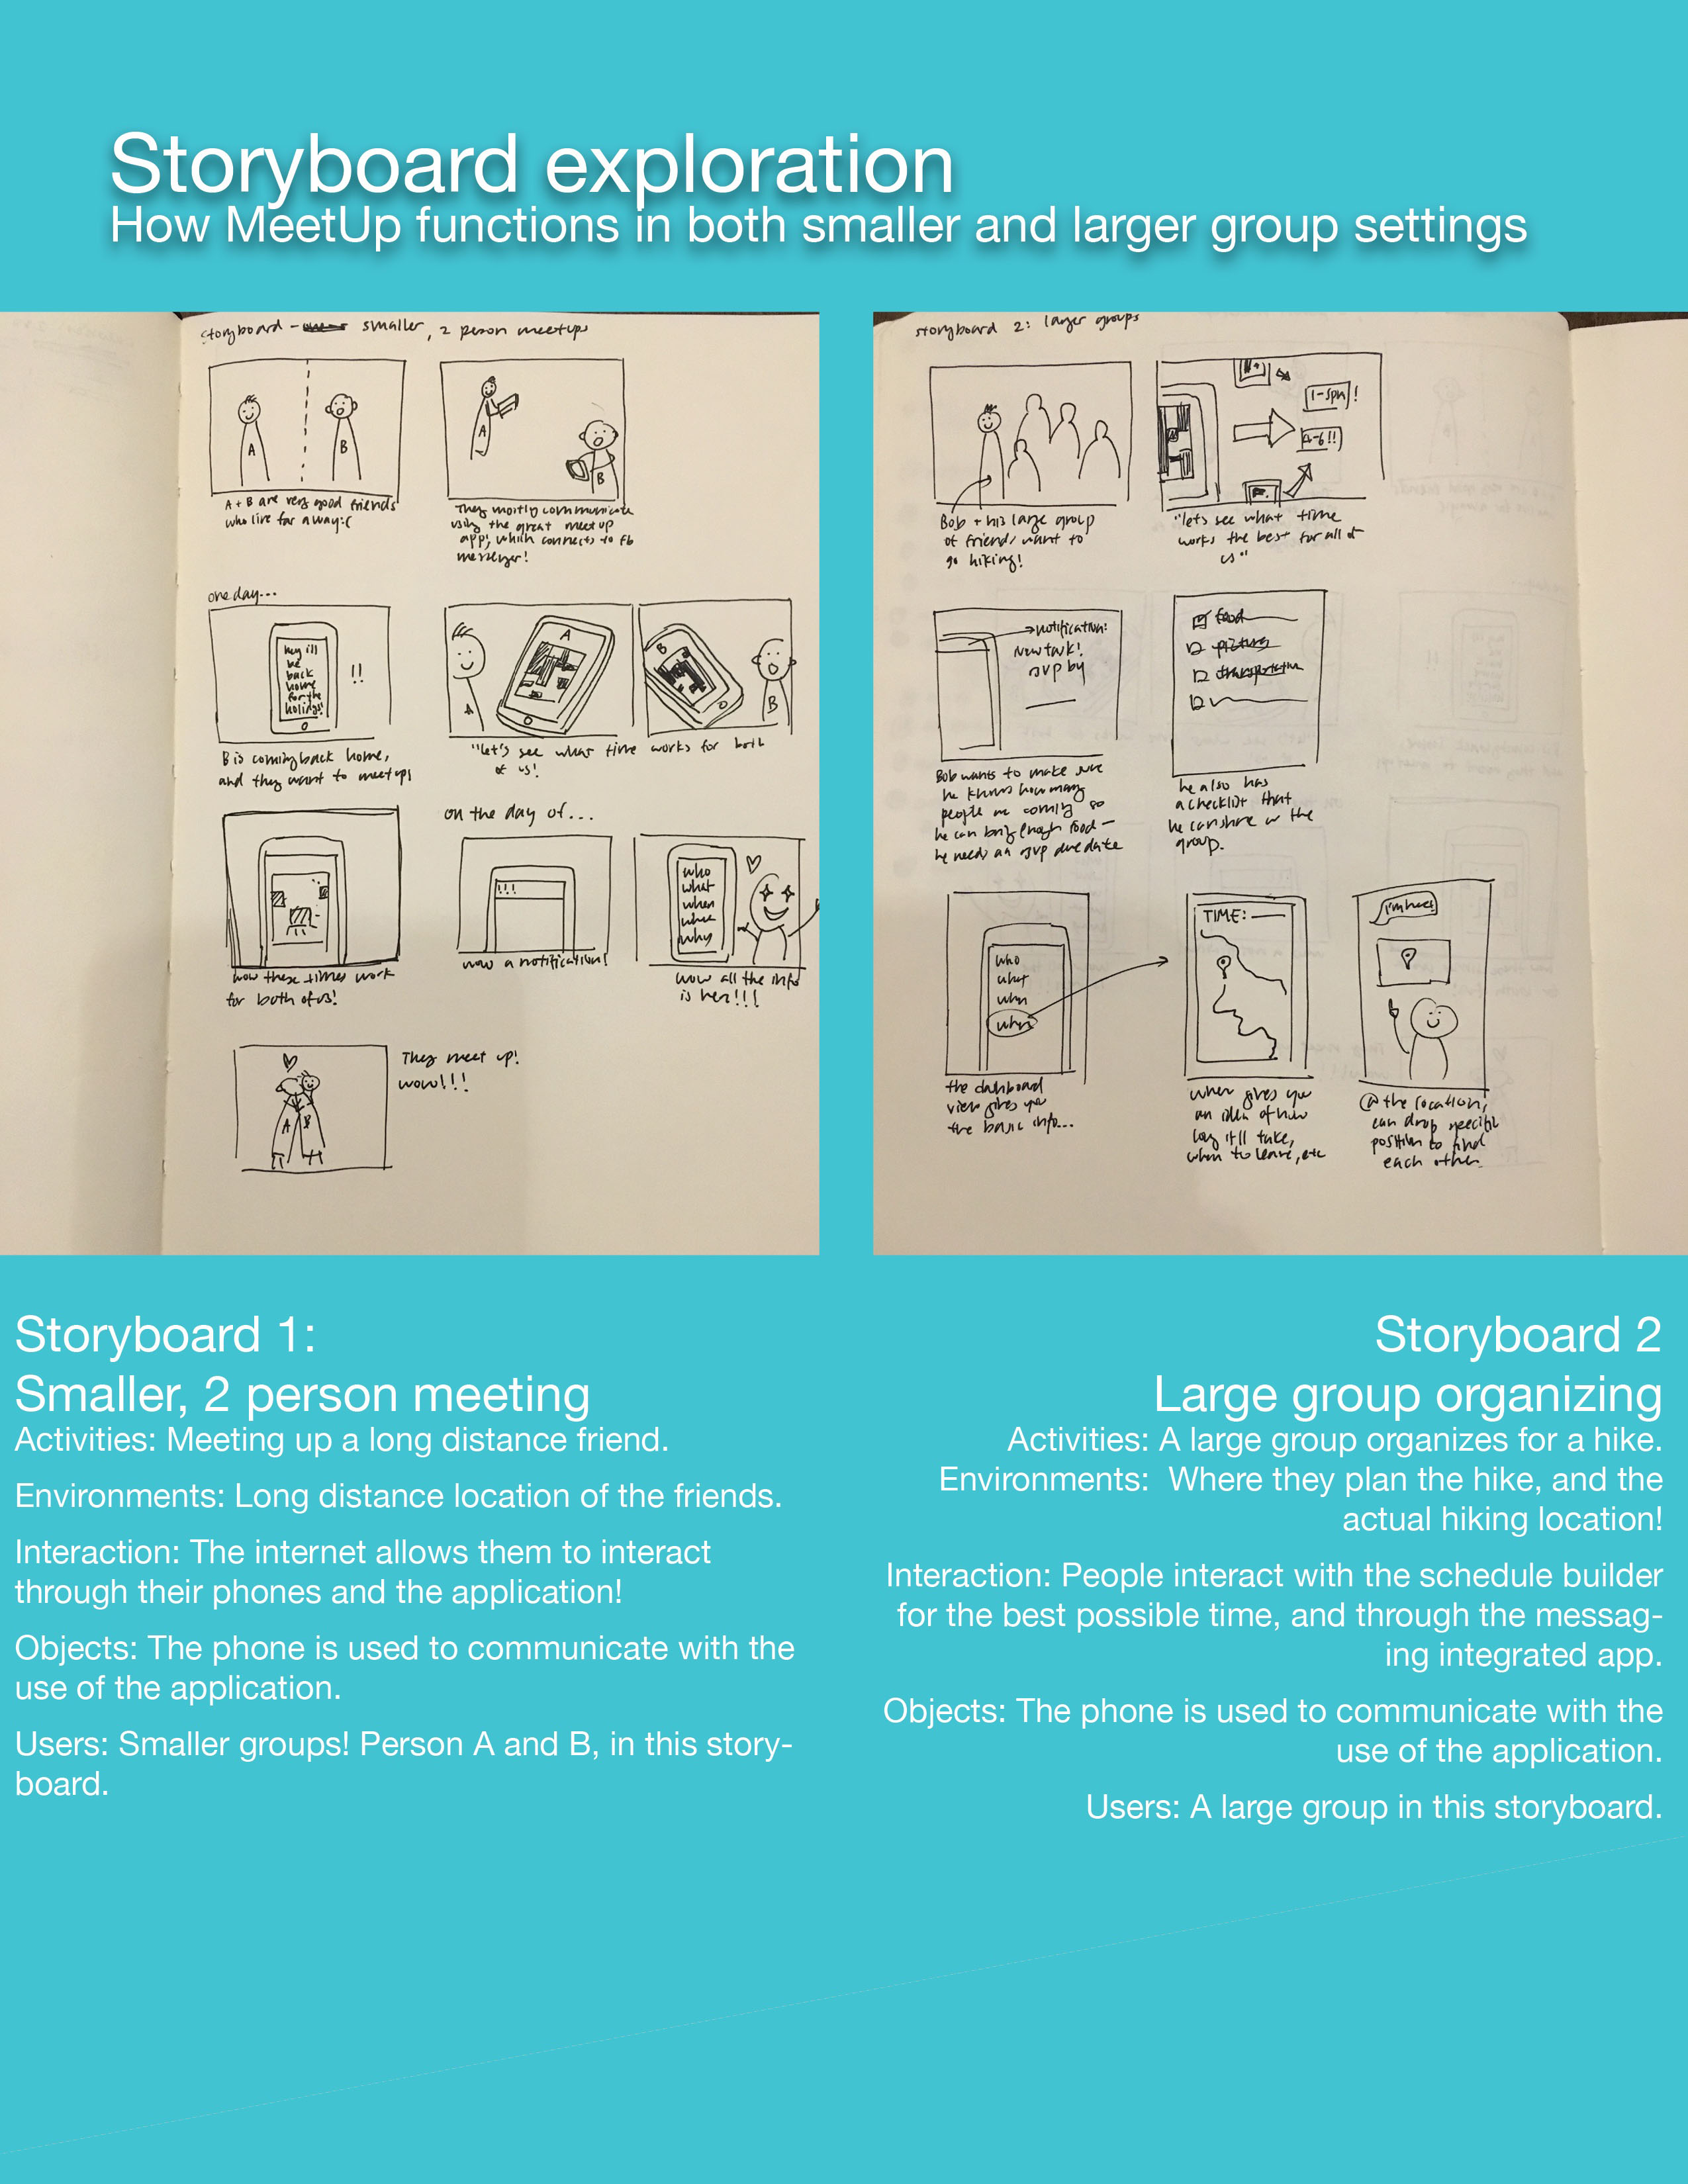 Storyboard exploration
How MeetUp functions in both smaller and larger group settings
storyboard - smaller, 2 person meetups
A
B
A + B are very good friends
who live far away:(
A
B
They mostly communicate
using the great meet up
app, which connects to fb
messenger!
one day...
hey ill
be
back
home
for the
holidays!
!!
B is coming back home,
and they want to meet up!
A
A
B
B
"let's see what time works for both
of us!
wow these times work
for both of us!
on the day of...
!!!
wow a notification!
who
what
when
where
why
wow all the info
is here!!!
A
B
They meet up!
wow!!!
storyboard 2: larger groups
Bob + his large group
of friends want to
go hiking!
1-5pm!
!!
"lets see what time
works the best for all of
us"
notification:
New task!
rsvp by
Bob wants to make sure
he knows how many
people are coming so
he can bring enough food —
he needs an rsvp due date
food
picture
transportation
he also has
a checklist that
he can share w the
group.
who
what
when
where
the dashboard
view gives you
the basic info...
TIME:
where gives you
an idea of how
long it'll take,
when to leave, etc
I'm here!
@ the location,
can drop specific
position to find
each other.
Storyboard 1:
Smaller, 2 person meeting
Activities: Meeting up a long distance friend.
Environments: Long distance location of the friends.
Interaction: The internet allows them to interact
through their phones and the application!
Objects: The phone is used to communicate with the
use of the application.
Users: Smaller groups! Person A and B, in this story-
board.
Storyboard 2
Large group organizing
Activities: A large group organizes for a hike.
Environments:  Where they plan the hike, and the
actual hiking location!
Interaction: People interact with the schedule builder
for the best possible time, and through the messag-
ing integrated app.
Objects: The phone is used to communicate with the
use of the application.
Users: A large group in this storyboard.